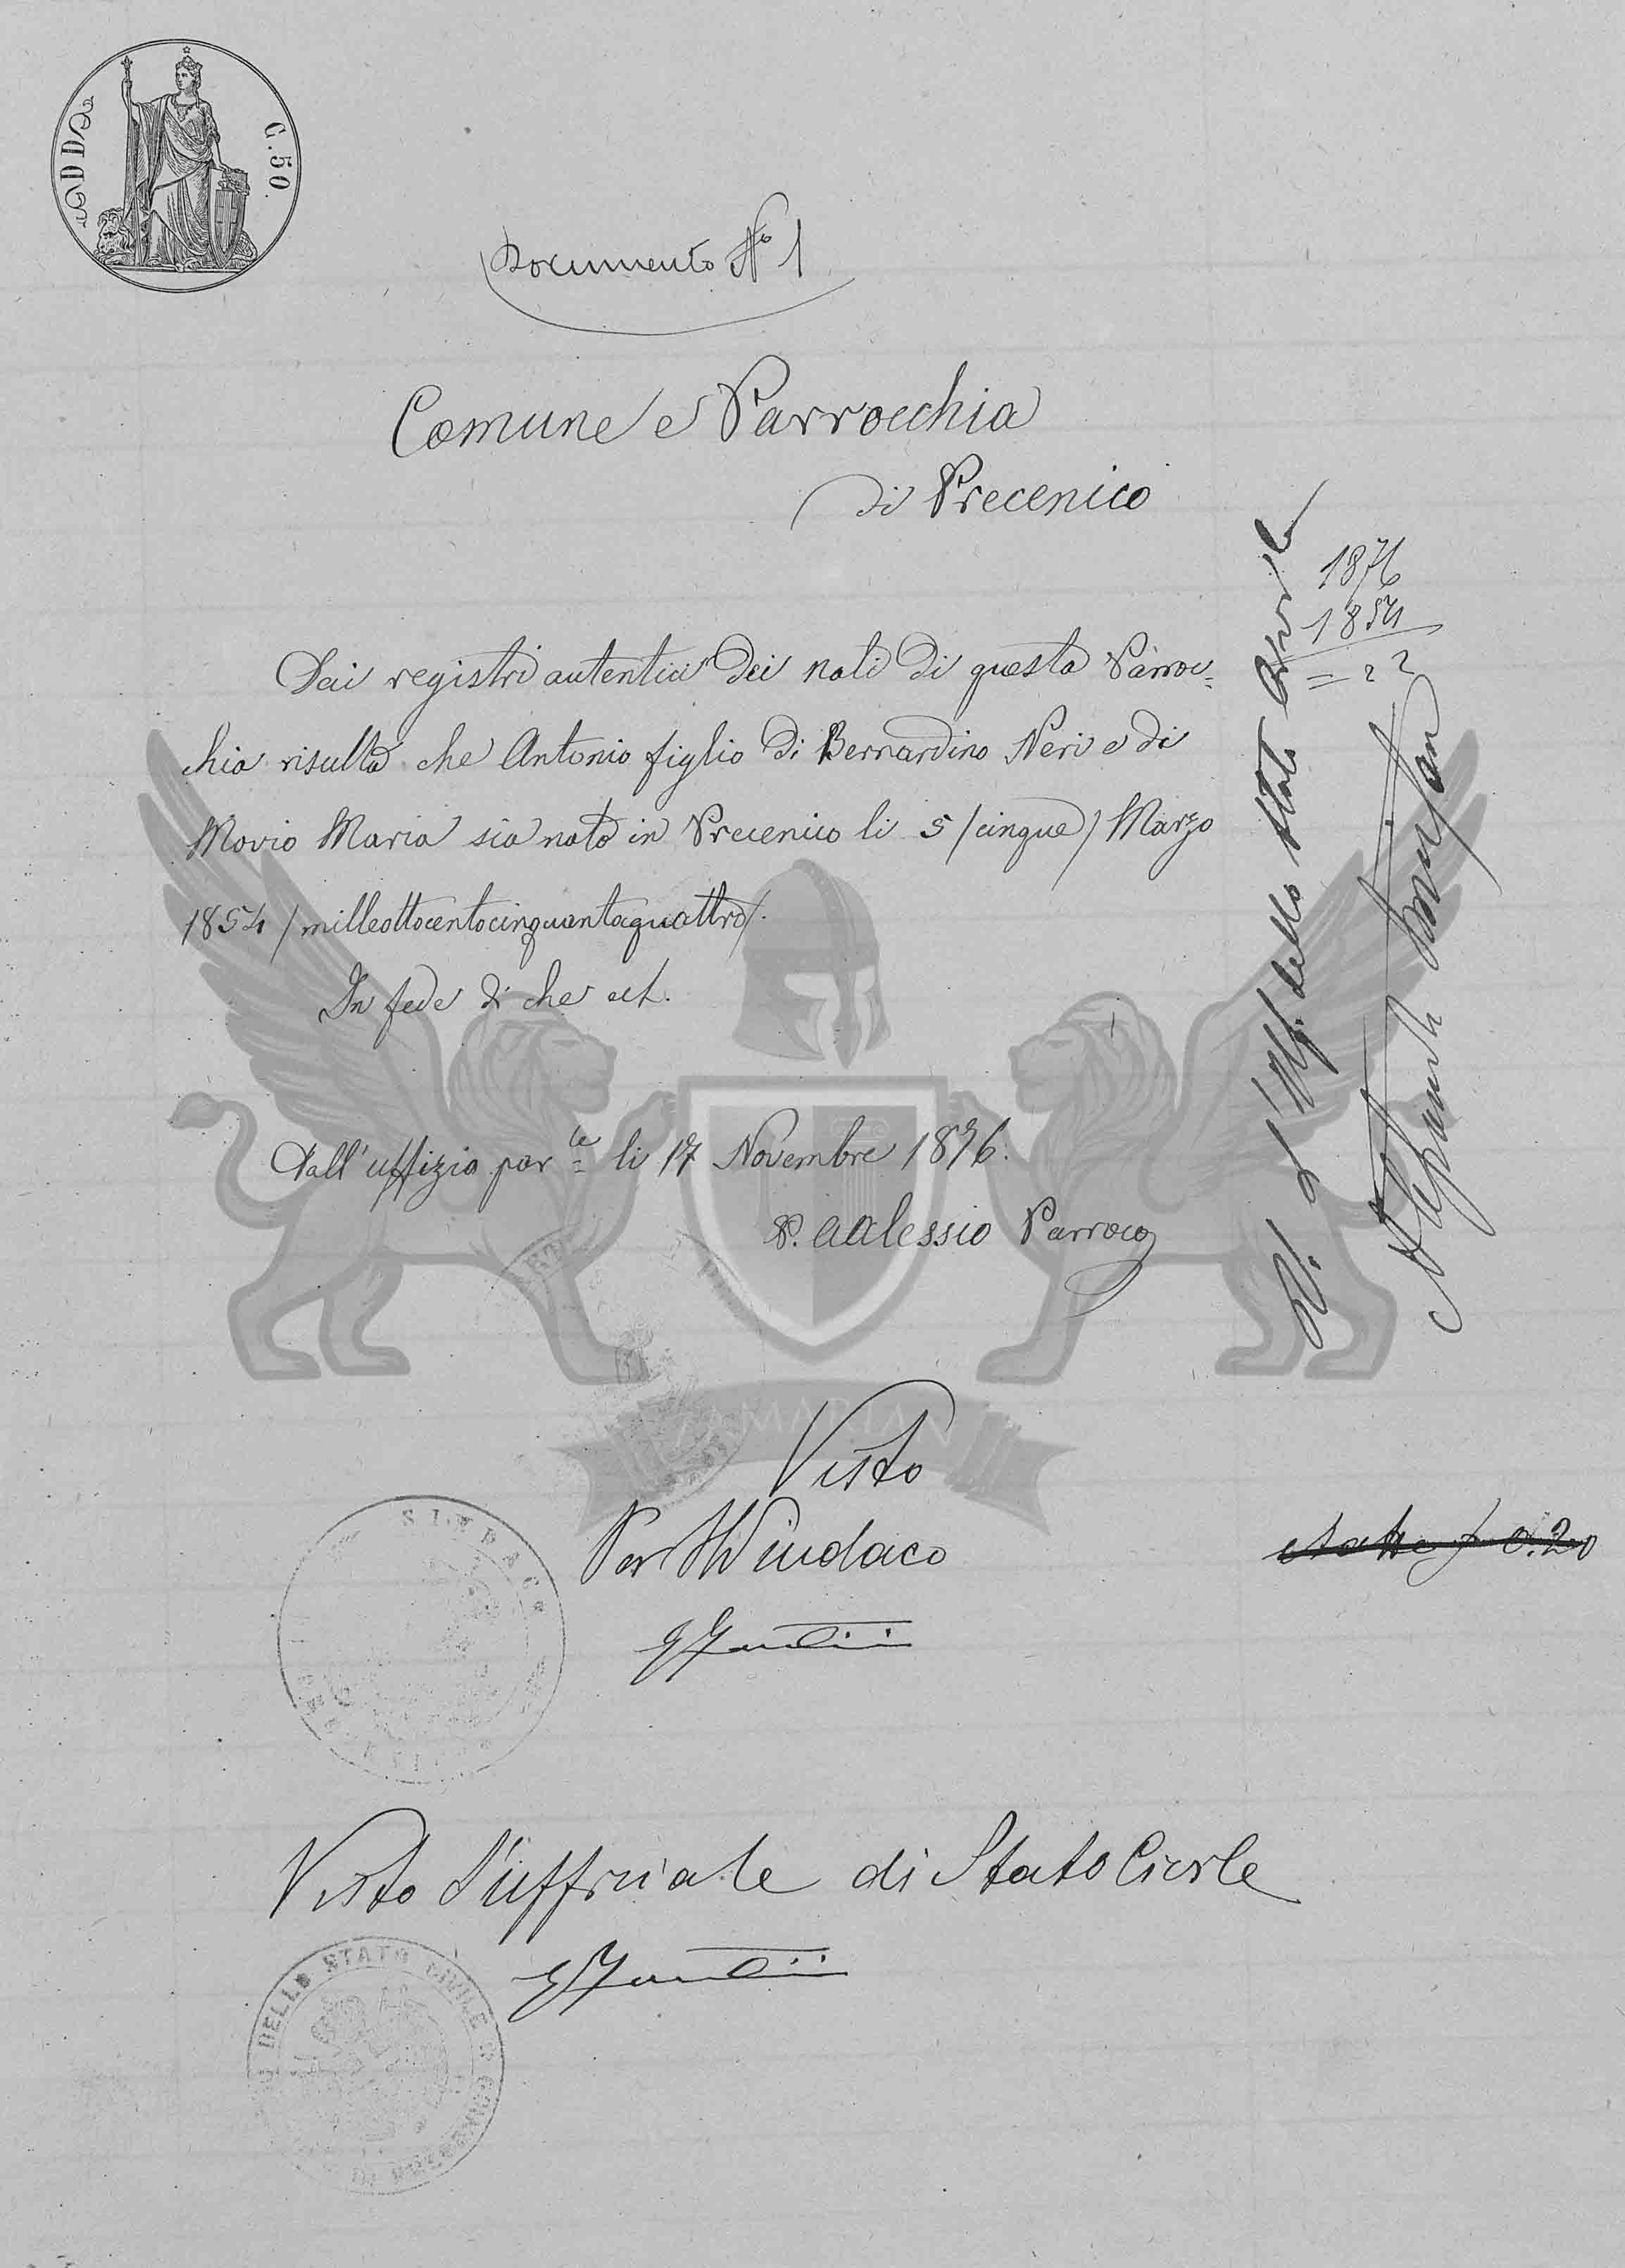 C. 50.
Documento N° 1
Comune e Parrocchia
di Precenico
Dai registri autentici dei nati di questa Parroc=
chia risulta che Antonio figlio di Bernardino Neri e di
Movio Maria sia nato in Precenico li 5 /cinque/ Marzo
1854 /millottocentocinquantaquattro/.
In fede di che ect.
Dall'uffizio par.le li 17 Novembre 1876.
P. Alessio Parroco
1876
1854
= 22
L'Uff. dello Stato Civile
Visto
Per Il Sindaco
0.20
SINDAC
Visto L'uffiziale di Stato Civile
DELLO STATO CIVILE